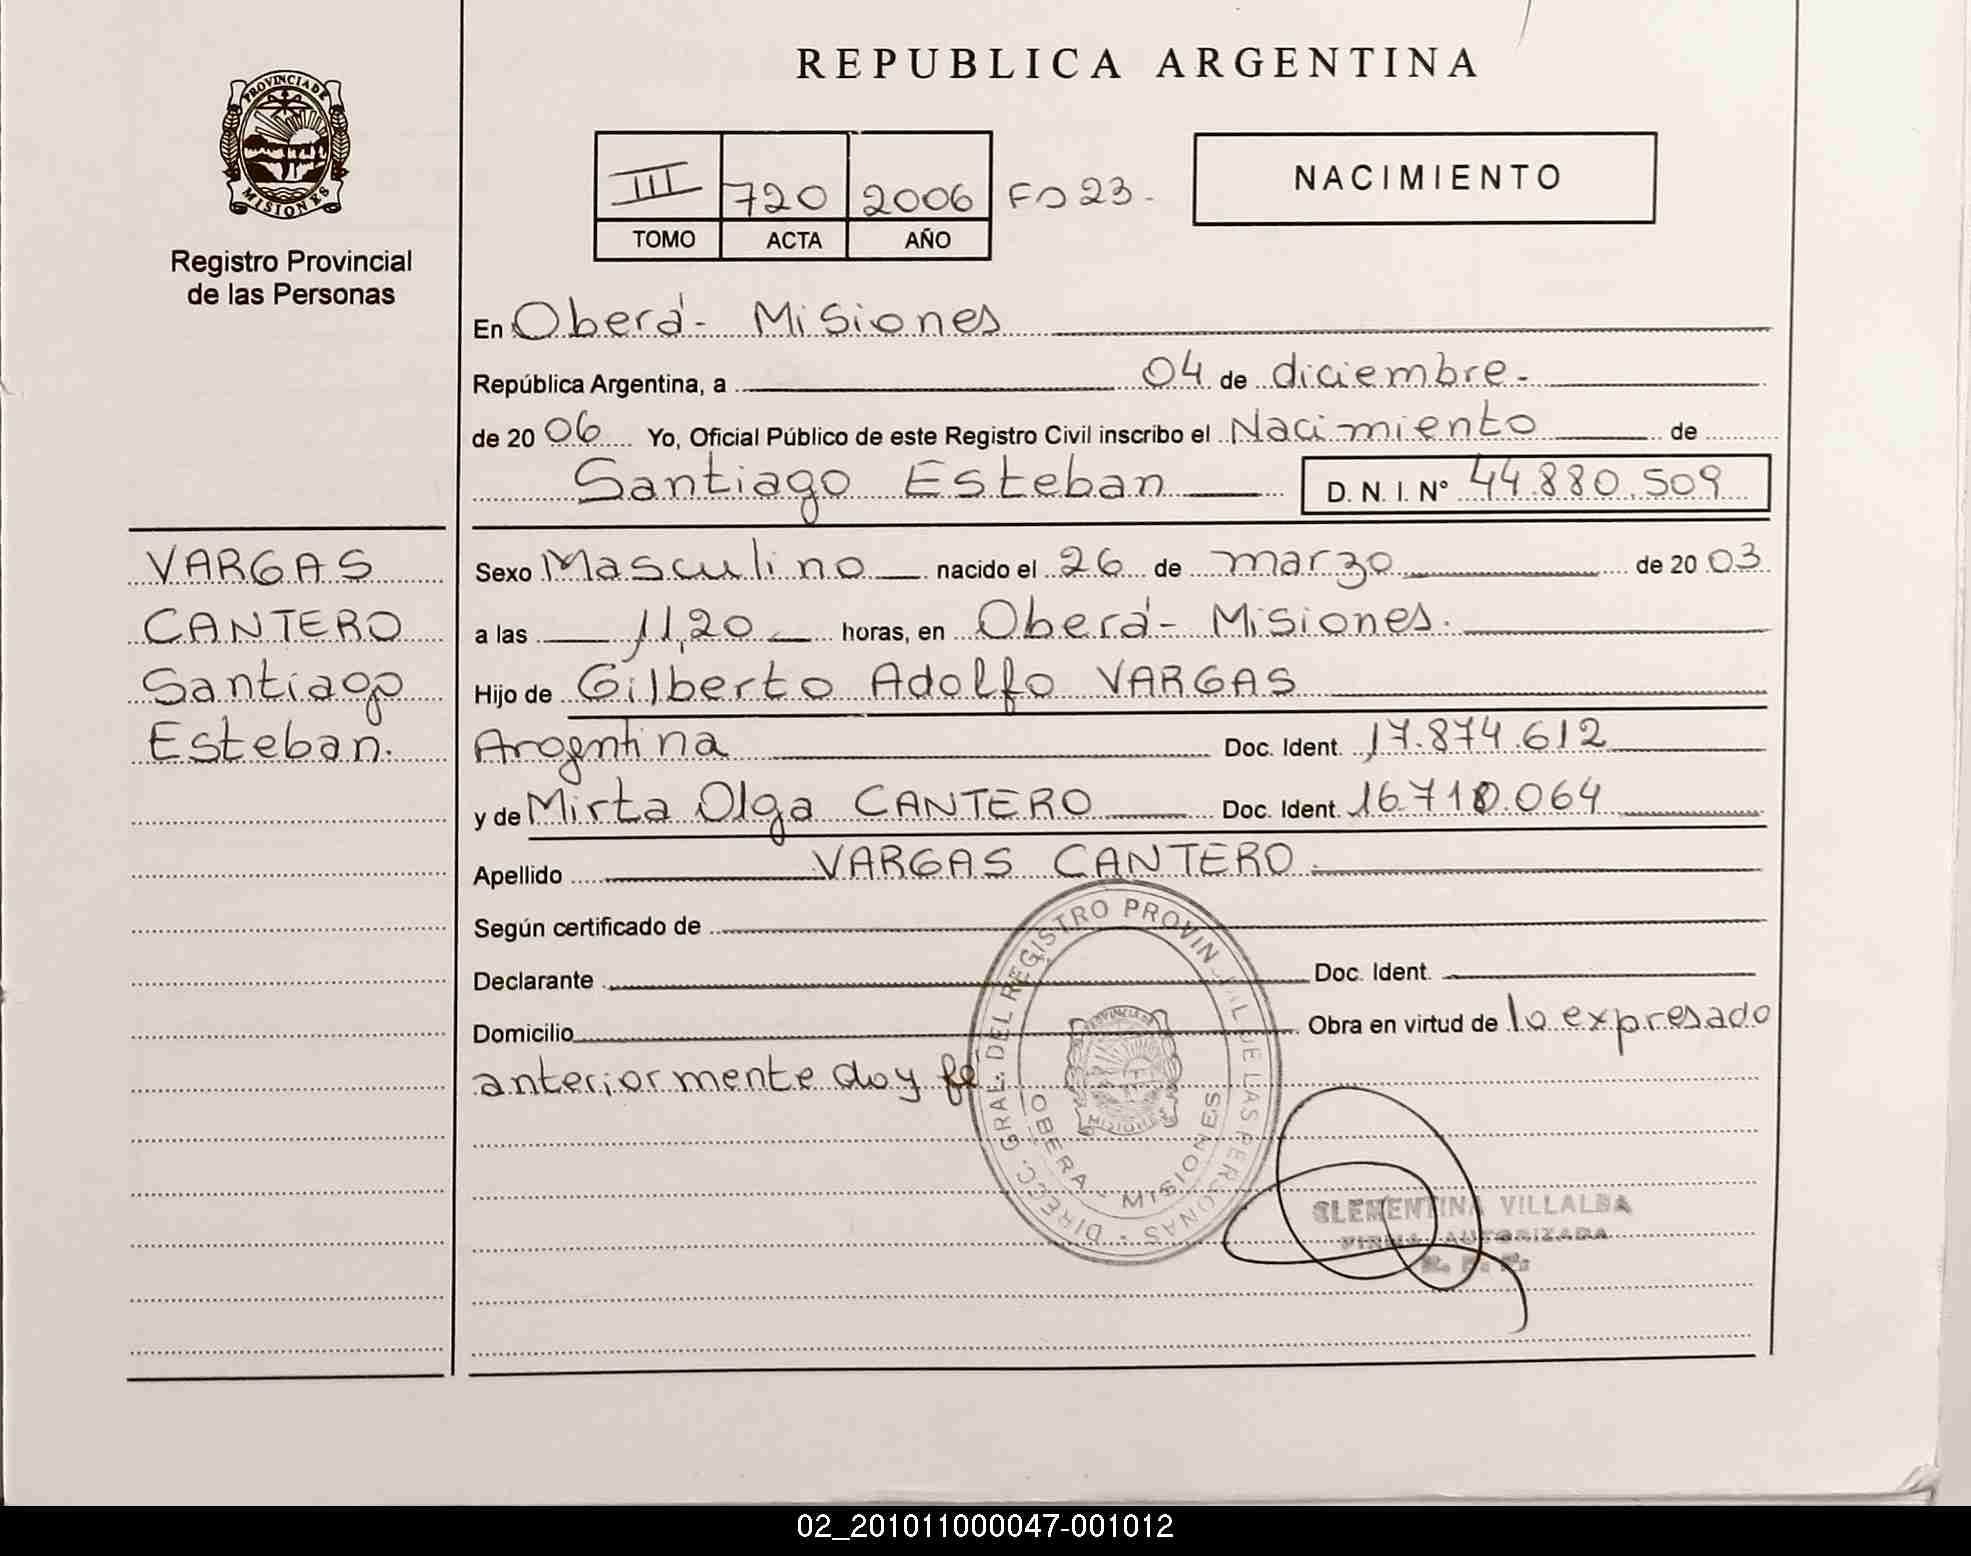 REPUBLICA ARGENTINA
PROVINCIA DE
MISIONES
Registro Provincial
de las Personas
III 720 2006 Fº 23.
TOMO ACTA AÑO
NACIMIENTO
En Oberá - Misiones
República Argentina, a 04 de diciembre.
de 20 06 Yo, Oficial Público de este Registro Civil inscribo el Nacimiento de
Santiago Esteban D. N. I. Nº 44.880.509
VARGAS
CANTERO
Santiago
Esteban.
Sexo Masculino nacido el 26 de marzo de 20 03
a las 11,20 horas, en Oberá - Misiones.
Hijo de Gilberto Adolfo VARGAS
Argentina Doc. Ident. 17.874.612
y de Mirta Olga CANTERO Doc. Ident. 16.710.064
Apellido VARGAS CANTERO
Según certificado de
Declarante Doc. Ident.
Domicilio Obra en virtud de lo expresado
anteriormente doy fé
DIRECC. GRAL. DEL REGISTRO PROVINCIAL DE LAS PERSONAS
OBERA - MISIONES
CLEMENTINA VILLALBA
FIRMA AUTORIZADA
02_201011000047-001012